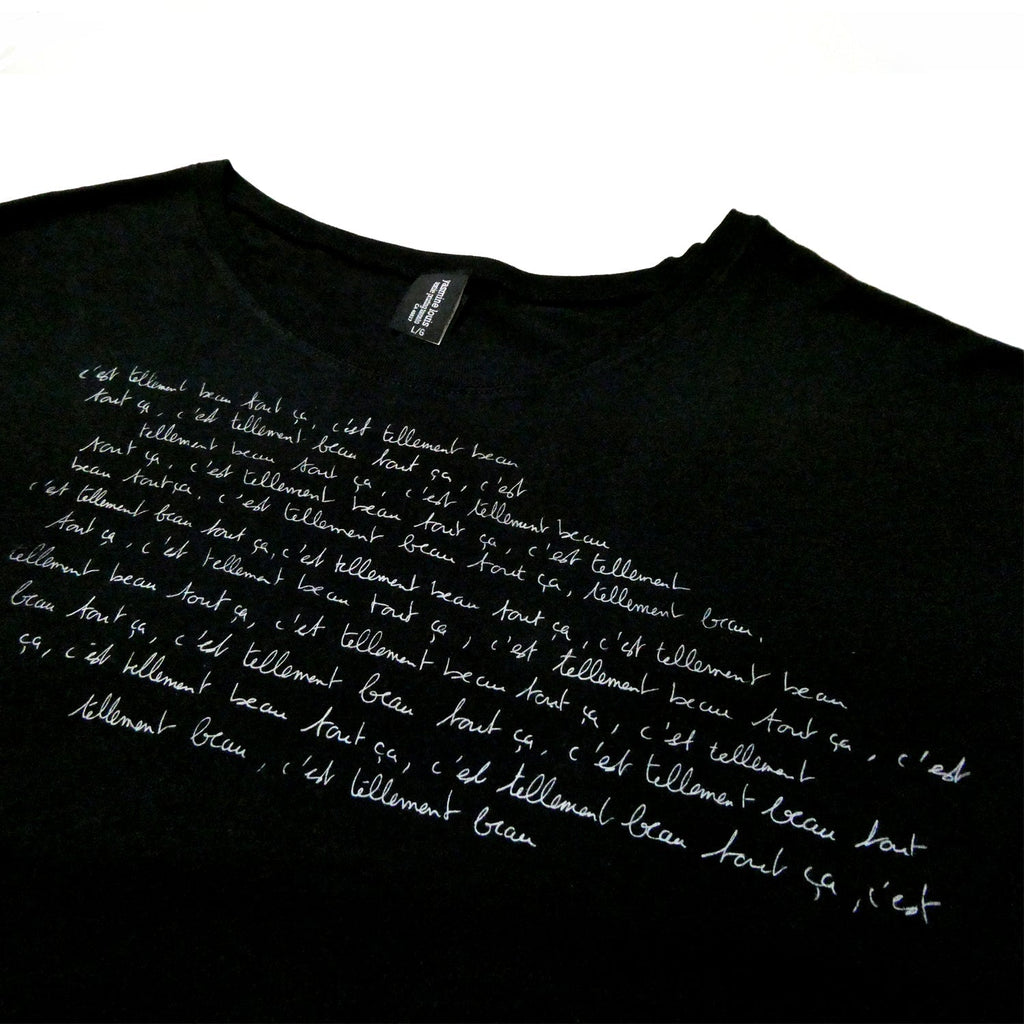 yasmine louis
L/G
c'est tellement beau tout ça, c'est tellement beau
tout ça, c'est tellement beau tout ça, c'est
tellement beau tout ça, c'est tellement beau
tout ça, c'est tellement beau tout ça, c'est tellement
beau tout ça. c'est tellement beau tout ça, tellement beau.
c'est tellement beau tout ça, c'est tellement beau tout ça, c'est tellement beau
tout ça, c'est tellement beau tout ça, c'est tellement beau tout ça, c'est
tellement beau tout ça, c'est tellement beau tout ça, c'est tellement
beau tout ça, c'est tellement beau tout ça, c'est tellement beau tout
ça, c'est tellement beau tout ça, c'est tellement beau tout ça, c'est
tellement beau, c'est tellement beau